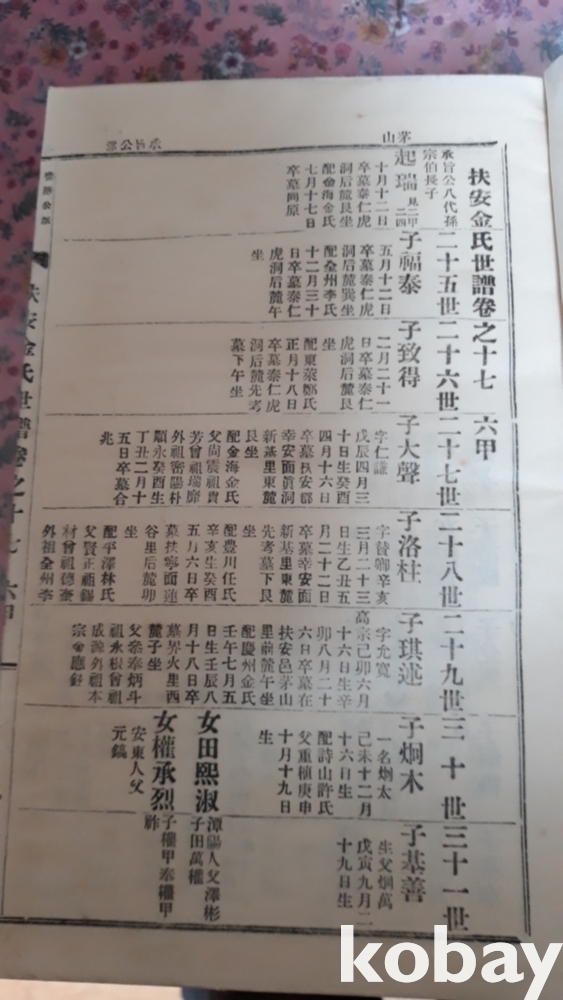 扶安金氏世譜卷之十七 六甲
二十五世二十六世二十七世二十八世二十九世三十世三十一世
茅山
承旨公派
承旨公八代孫
宗伯長子
起瑞
十月十二日
卒墓泰仁虎
洞后麓艮坐
配金海金氏
七月十七日
卒墓同原
子福泰
五月十二日
卒墓泰仁虎
洞后麓巽坐
配全州李氏
十二月三十
日卒墓泰仁
虎洞后麓午
坐
子致得
二月二十一
日卒墓泰仁
虎洞后麓艮
坐
配東萊鄭氏
正月十八日
卒墓泰仁虎
洞后麓先考
墓下午坐
子大聲
字仁謙
戊辰四月三
十日生癸酉
四月十六日
卒墓扶安郡
幸安面眞洞
新基里東麓
艮坐
配金海金氏
父尙震祖貴
芳曾祖瑞廨
外祖密陽朴
順永癸酉生
丁丑二月十
五日卒墓合
兆
子洛柱
字贊卿辛亥
三月二十三
日生乙丑五
月二十二日
卒墓幸安面
新基里東麓
先考墓下艮
坐
配豊川任氏
辛亥生癸酉
五月六日卒
墓扶寧面蓮
谷里后麓卯
坐
配平澤林氏
父賢正祖錫
材曾祖德奎
外祖全州李
子琪述
字允寬
高宗己卯六月
十六日生辛
卯八月二十
六日卒墓在
扶安邑茅山
里前麓午坐
配慶州金氏
壬午七月五
日生壬辰八
月十八日卒
墓界火里西
麓子坐
父泰奉炳斗
祖永根曾祖
成源外祖本
宗金應
子炯木
一名炯太
己未十二月
十六日生
配詩山許氏
父重植庚申
十月十九日
生
女田熙淑
潭陽人父澤彬
子田萬權
女權承烈
安東人父
元鎬
子權甲奉權甲
祚
子基善
生父炯萬
戊寅九月二
十九日生
扶安金氏世譜卷之十七 六甲
kobay